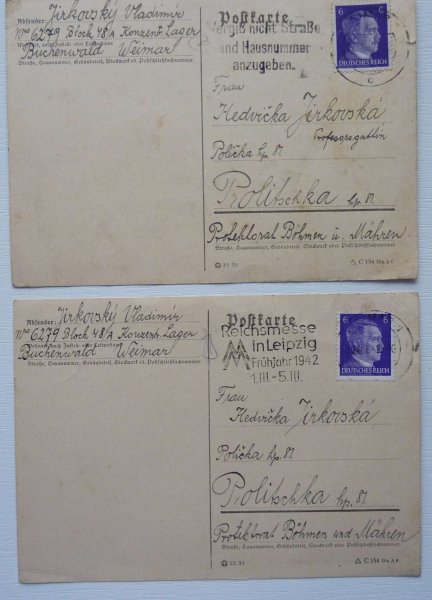 Absender: Jirkovský Vladimír
Nro 6279 Block 48/A Konzent. Lager
Buchenwald Weimar
Straße, Hausnummer, Gebäudeteil, Stockwerk od. Postschließfachnummer
Postkarte
Vergiß nicht Straße
und Hausnummer
anzugeben.
6 6
DEUTSCHES REICH
c
Frau
Hedvička Jirkovská
Professorsgattin
Polička čp. 81.
Politschka čp. 81.
Protektorat Böhmen u. Mähren.
Straße, Hausnummer, Gebäudeteil, Stockwerk oder Postschließfachnummer
C 154 Din A 6
Absender: Jirkovský Vladimír
Nro 6279 Block 48/A Konzent. Lager
Buchenwald Weimar
Straße, Hausnummer, Gebäudeteil, Stockwerk od. Postschließfachnummer
Postkarte
Reichsmesse
in Leipzig
Frühjahr 1942
1.III.-5.III.
6 6
DEUTSCHES REICH
Frau
Hedvička Jirkovská
Polička čp. 81.
Politschka čp. 81.
Protektorat Böhmen und Mähren.
Straße, Hausnummer, Gebäudeteil, Stockwerk oder Postschließfachnummer
C 154 Din A 6